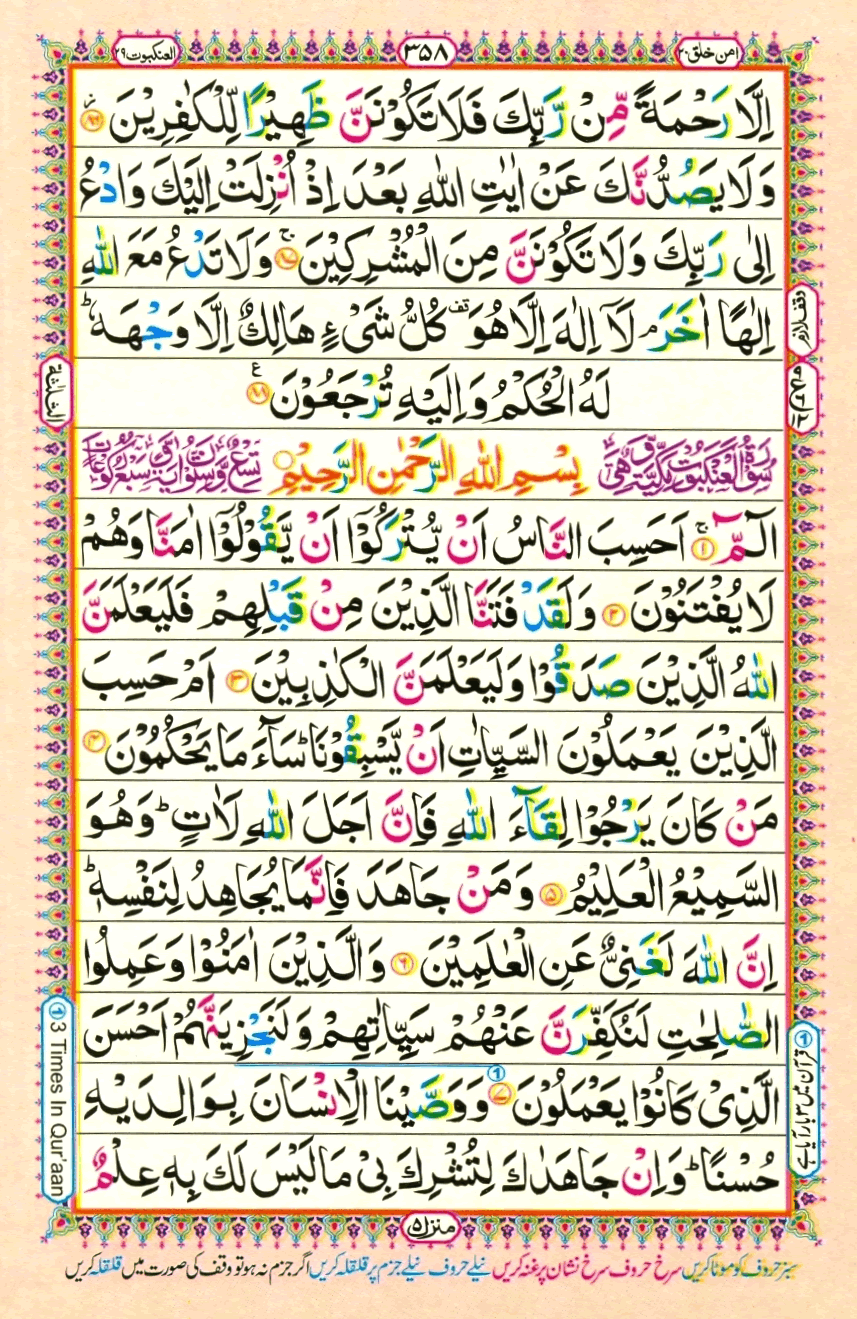 امن خلق ۲۰
۳۵۸
العنکبوت ۲۹
اِلَّا رَحْمَةً مِّنْ رَّبِّكَ فَلَا تَكُوْنَنَّ ظَهِيْرًا لِّلْكٰفِرِيْنَ ۸۶
وَلَا يَصُدُّنَّكَ عَنْ اٰيٰتِ اللّٰهِ بَعْدَ اِذْ اُنْزِلَتْ اِلَيْكَ وَادْعُ
اِلٰى رَبِّكَ وَلَا تَكُوْنَنَّ مِنَ الْمُشْرِكِيْنَ ۚ ۸۷ وَلَا تَدْعُ مَعَ اللّٰهِ
اِلٰهًا اٰخَرَ ۘ لَاۤ اِلٰهَ اِلَّا هُوَ قف كُلُّ شَیْءٍ هَالِكٌ اِلَّا وَجْهَهٗ ؕ
لَهُ الْحُكْمُ وَاِلَيْهِ تُرْجَعُوْنَ ۸۸ ع
سُوْرَةُ الْعَنْكَبُوْتِ مَكِّيَّةٌ وَّهِيَ
بِسْمِ اللّٰهِ الرَّحْمٰنِ الرَّحِيْمِ
تِسْعٌ وَّسِتُّوْنَ اٰيَةً وَّسَبْعُ رُكُوْعَاتٍ
الٓمّٓ ۚ ۱ اَحَسِبَ النَّاسُ اَنْ يُّتْرَكُوْۤا اَنْ يَّقُوْلُوْۤا اٰمَنَّا وَهُمْ
لَا يُفْتَنُوْنَ ۲ وَلَقَدْ فَتَنَّا الَّذِيْنَ مِنْ قَبْلِهِمْ فَلَيَعْلَمَنَّ
اللّٰهُ الَّذِيْنَ صَدَقُوْا وَلَيَعْلَمَنَّ الْكٰذِبِيْنَ ۳ اَمْ حَسِبَ
الَّذِيْنَ يَعْمَلُوْنَ السَّيِّاٰتِ اَنْ يَّسْبِقُوْنَا ؕ سَآءَ مَا يَحْكُمُوْنَ ۴
مَنْ كَانَ يَرْجُوْا لِقَآءَ اللّٰهِ فَاِنَّ اَجَلَ اللّٰهِ لَاٰتٍ ؕ وَهُوَ
السَّمِيْعُ الْعَلِيْمُ ۵ وَمَنْ جَاهَدَ فَاِنَّمَا يُجَاهِدُ لِنَفْسِهٖ ؕ
اِنَّ اللّٰهَ لَغَنِیٌّ عَنِ الْعٰلَمِيْنَ ۶ وَالَّذِيْنَ اٰمَنُوْا وَعَمِلُوا
الصّٰلِحٰتِ لَنُكَفِّرَنَّ عَنْهُمْ سَيِّاٰتِهِمْ وَلَنَجْزِيَنَّهُمْ اَحْسَنَ
الَّذِیْ كَانُوْا يَعْمَلُوْنَ ۷ 1 وَوَصَّيْنَا الْاِنْسَانَ بِوَالِدَيْهِ
حُسْنًا ؕ وَاِنْ جَاهَدٰكَ لِتُشْرِكَ بِیْ مَا لَيْسَ لَكَ بِهٖ عِلْمٌ
وقف لازم
الثلثة
1 قرآن میں ۳ بار آیا ہے
1 3 Times In Qur'aan
منزل ۵
سبز حروف کو موٹا کریں سرخ حروف سرخ نشان پر غنہ کریں نیلے حروف نیلے جزم پر قلقلہ کریں اگر جزم نہ ہو تو وقف کی صورت میں قلقلہ کریں